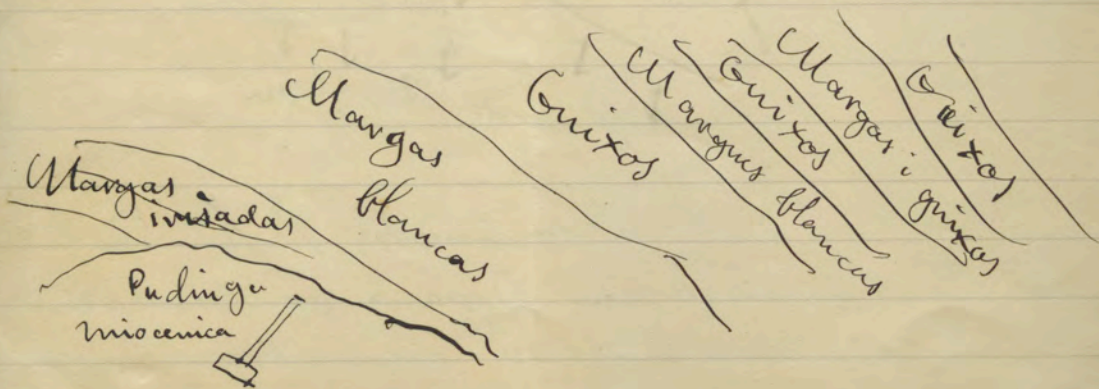 Margas
irisadas
Pudinga
miocenica
Margas
blancas
Guixos
Margas blancas
Guixos
Margas i guixos
Guixos